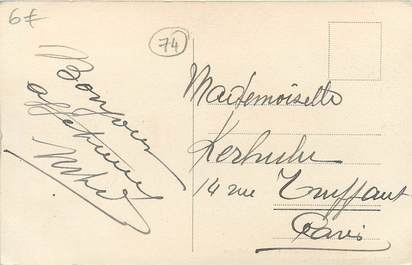 6€
74
Bonjour
affectueux
Mademoiselle
Kerhulu
14 rue Truffaut
Paris